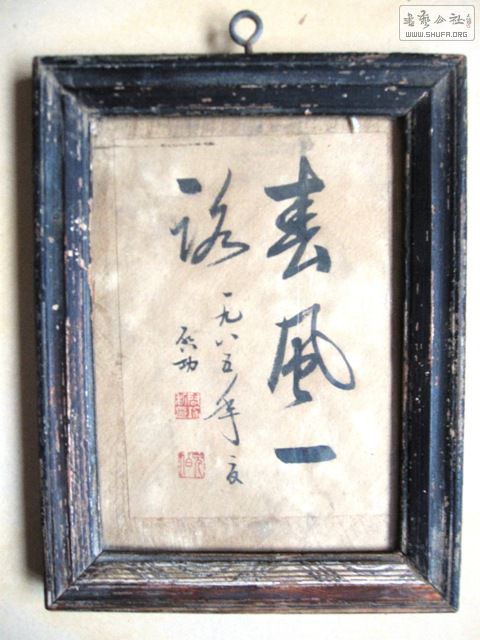 春風一
路
一九八五年夏
启功
元白
書藝公社
WWW.SHUFA.ORG